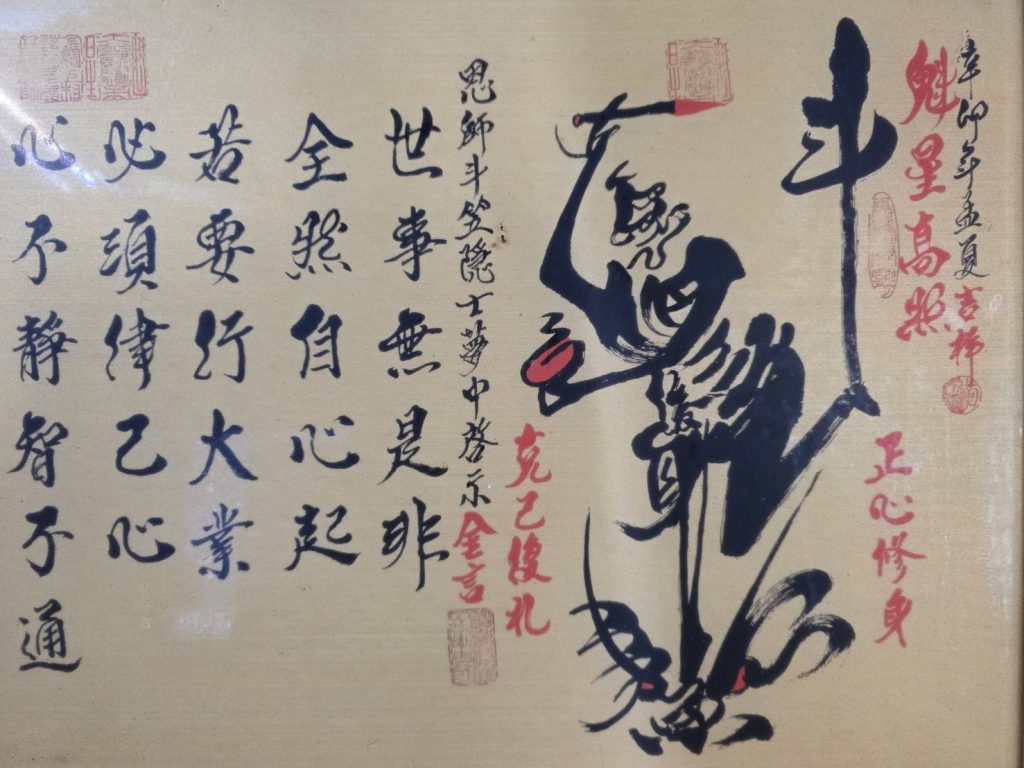 辛卯年孟夏吉祥
魁星高照
正心修身
斗
克己復礼
恩師斗笠隐士夢中啓示金言
世事無是非
全然自心起
若要行大業
必須律己心
心不静智不通